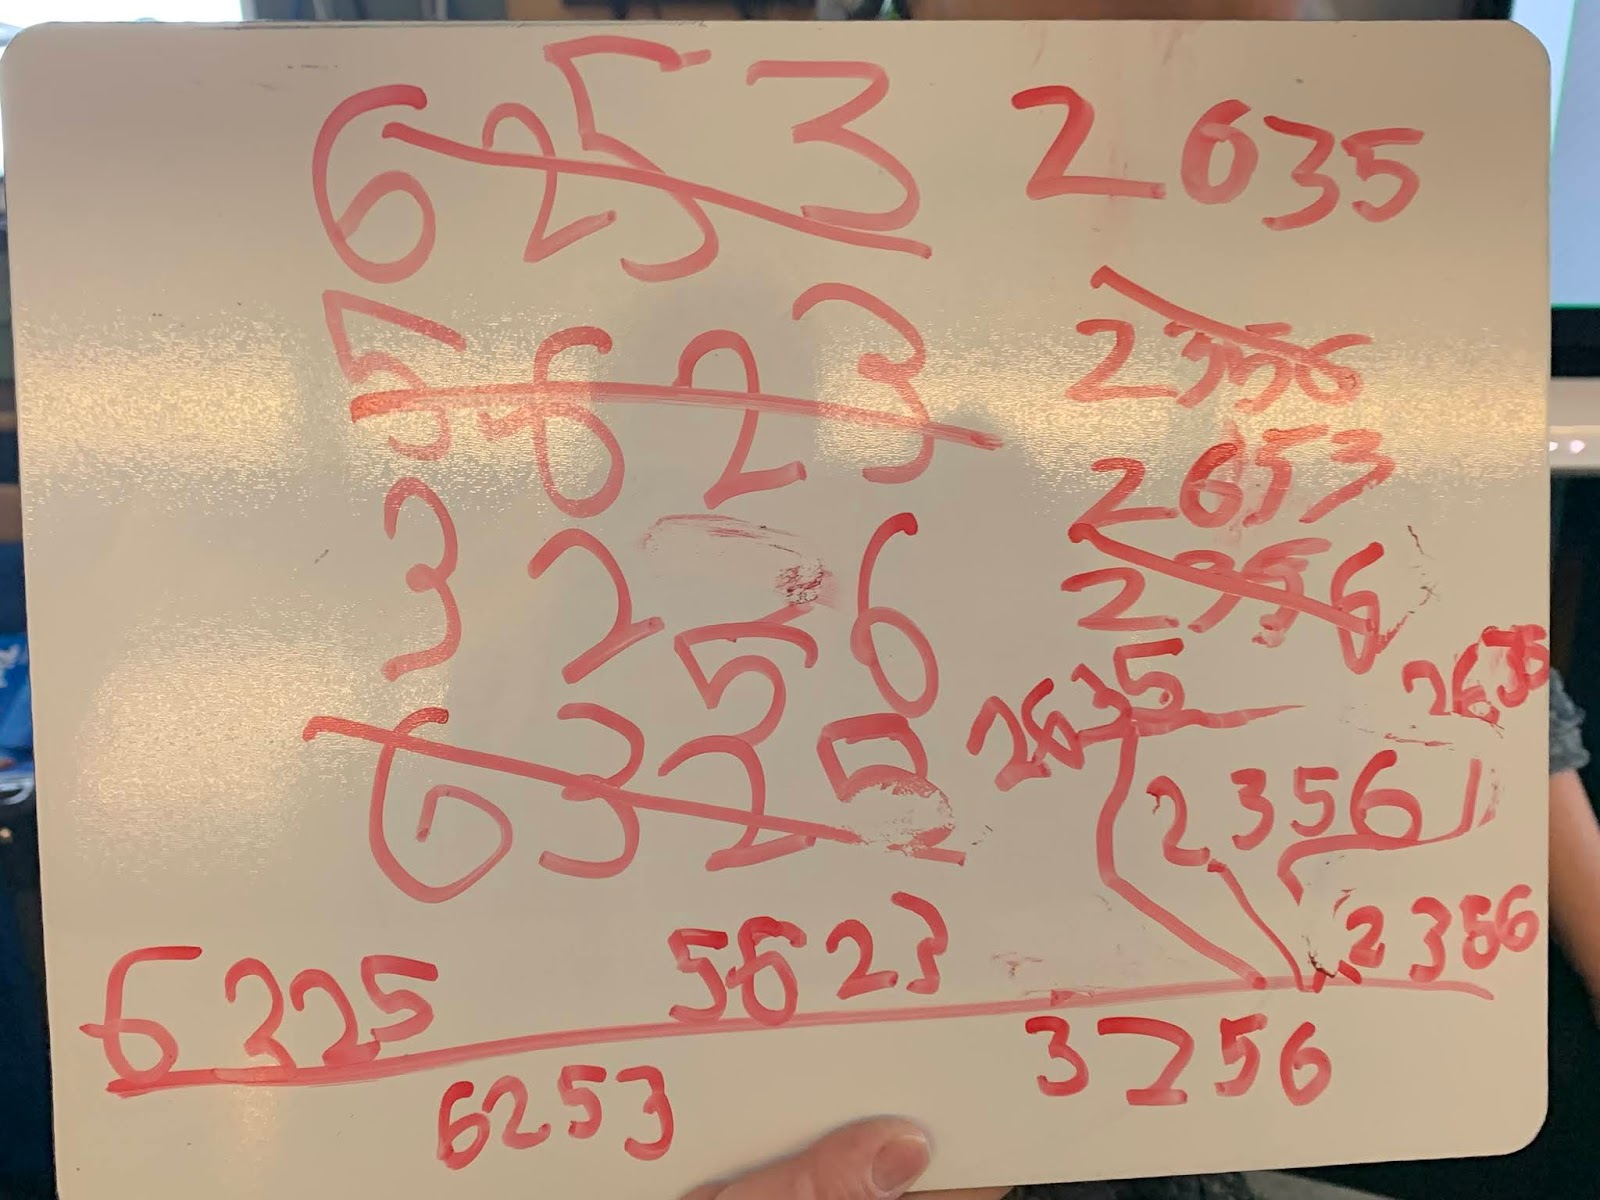 6253
2635
5623
2356
2653
3256
2356
2635
2635
6325
2356
2356
6325
5623
6253
3256